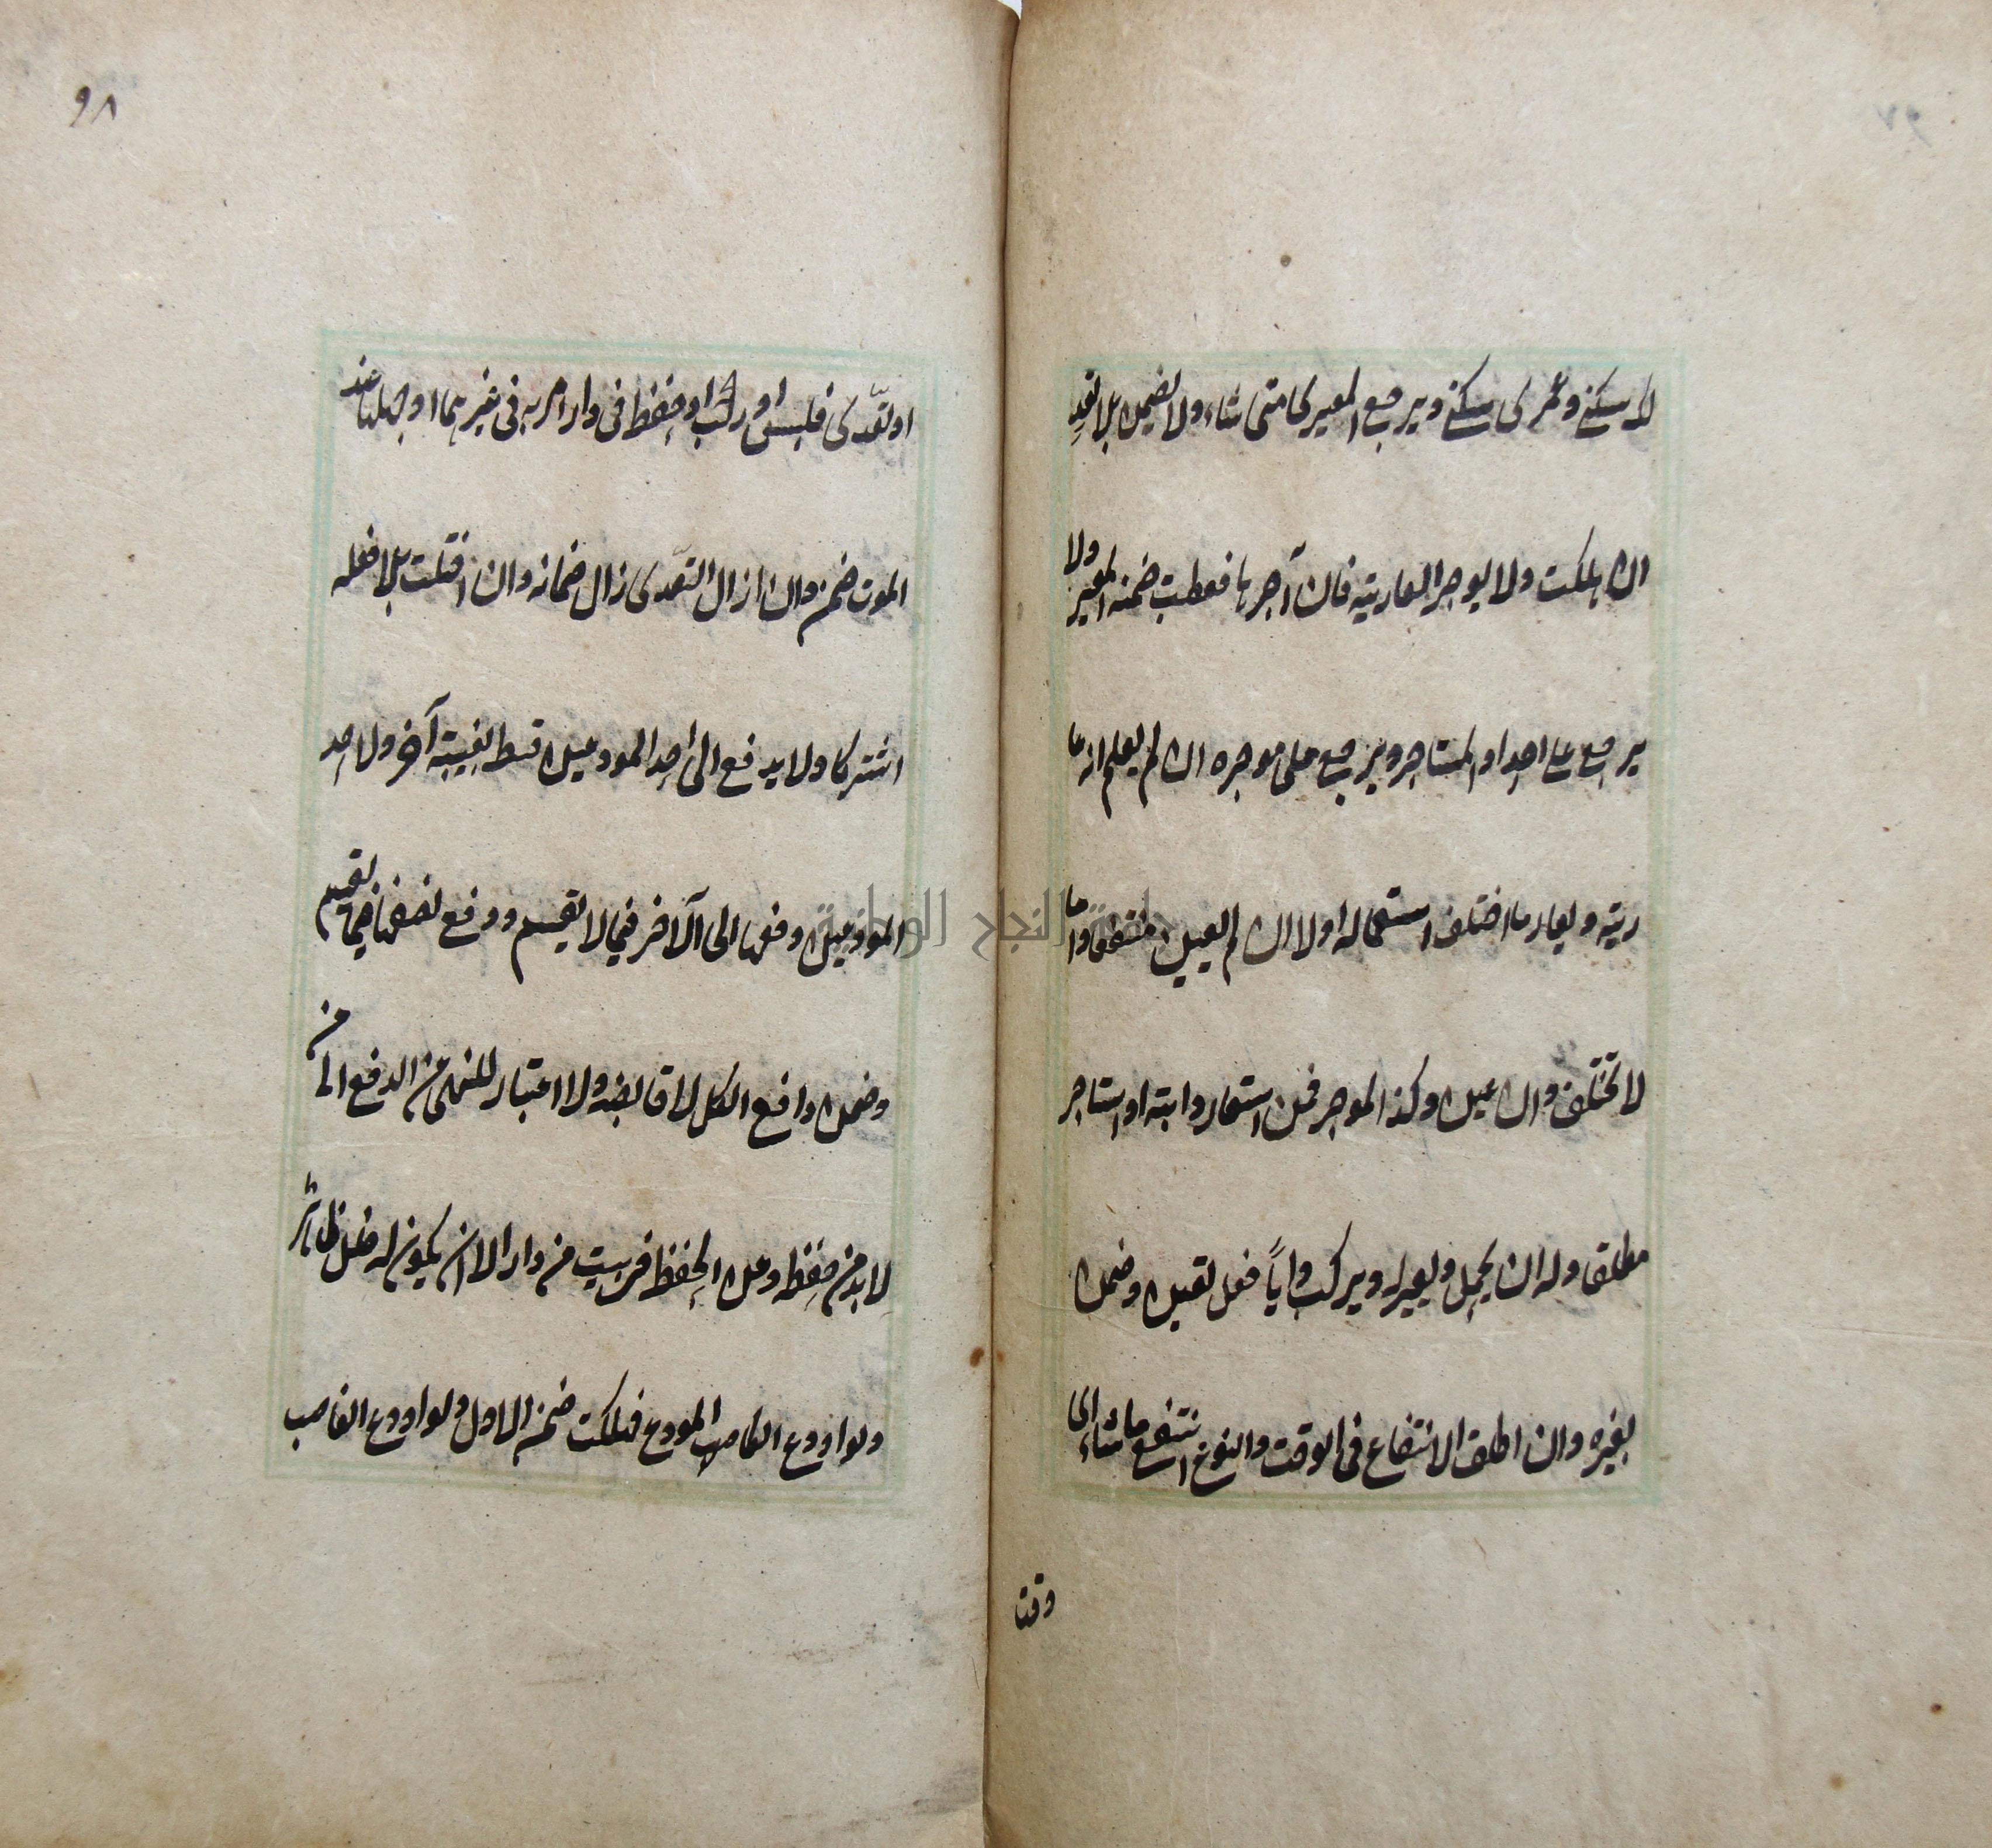 ٩٧
لك سكنى وعمرى سكنى ويرجع المعير كا متى شاء ولا يضمن بلا تعدٍ
ان هلكت ولا يوجر العارية فان آجرها فعطبت ضمنه المعير ولا
يرجع على احد او المستاجر ويرجع على موجره ان لم يعلم انه عا
رية ويعار ما اختلف استعماله اولا ان لم يعين منتفعا وما
لا تختلف وان عين وكذا الموجر فمن استعار دابته او استاجر
مطلقا وله ان يحمل ويعير له ويركب واياً فعل تعين وضمن
بغيره وان اطلق الانتفاع فى الوقت والنوع انتفع ما شاء اى
وقت
٩٨
او تعدّى فلبس او ركب او حفظ فى دار امر به فى غيرها او جهلها عند
الموت ضمن وان ازال التعدّى زال ضمانه وان اختلت بلا فعله
اشتركا ولا يدفع الى احد المودعين قسطه بغيبة آخر ولاحد
المودعين دفعها الى الآخر فيما لا يقسم ودفع نصفها فيما يقسم
وضمن دافع الكل لا قابضه ولا اعتبار للنهى عن الدفع الى من
لا بد من حفظه وعن الحفظ فى بيت من دار الا ان يكون له خلل ظاهر
ولو اودع الغاصب المودع فهلكت ضمن الاول ولو اودع الغاصب
جامعة النجاح الوطنية